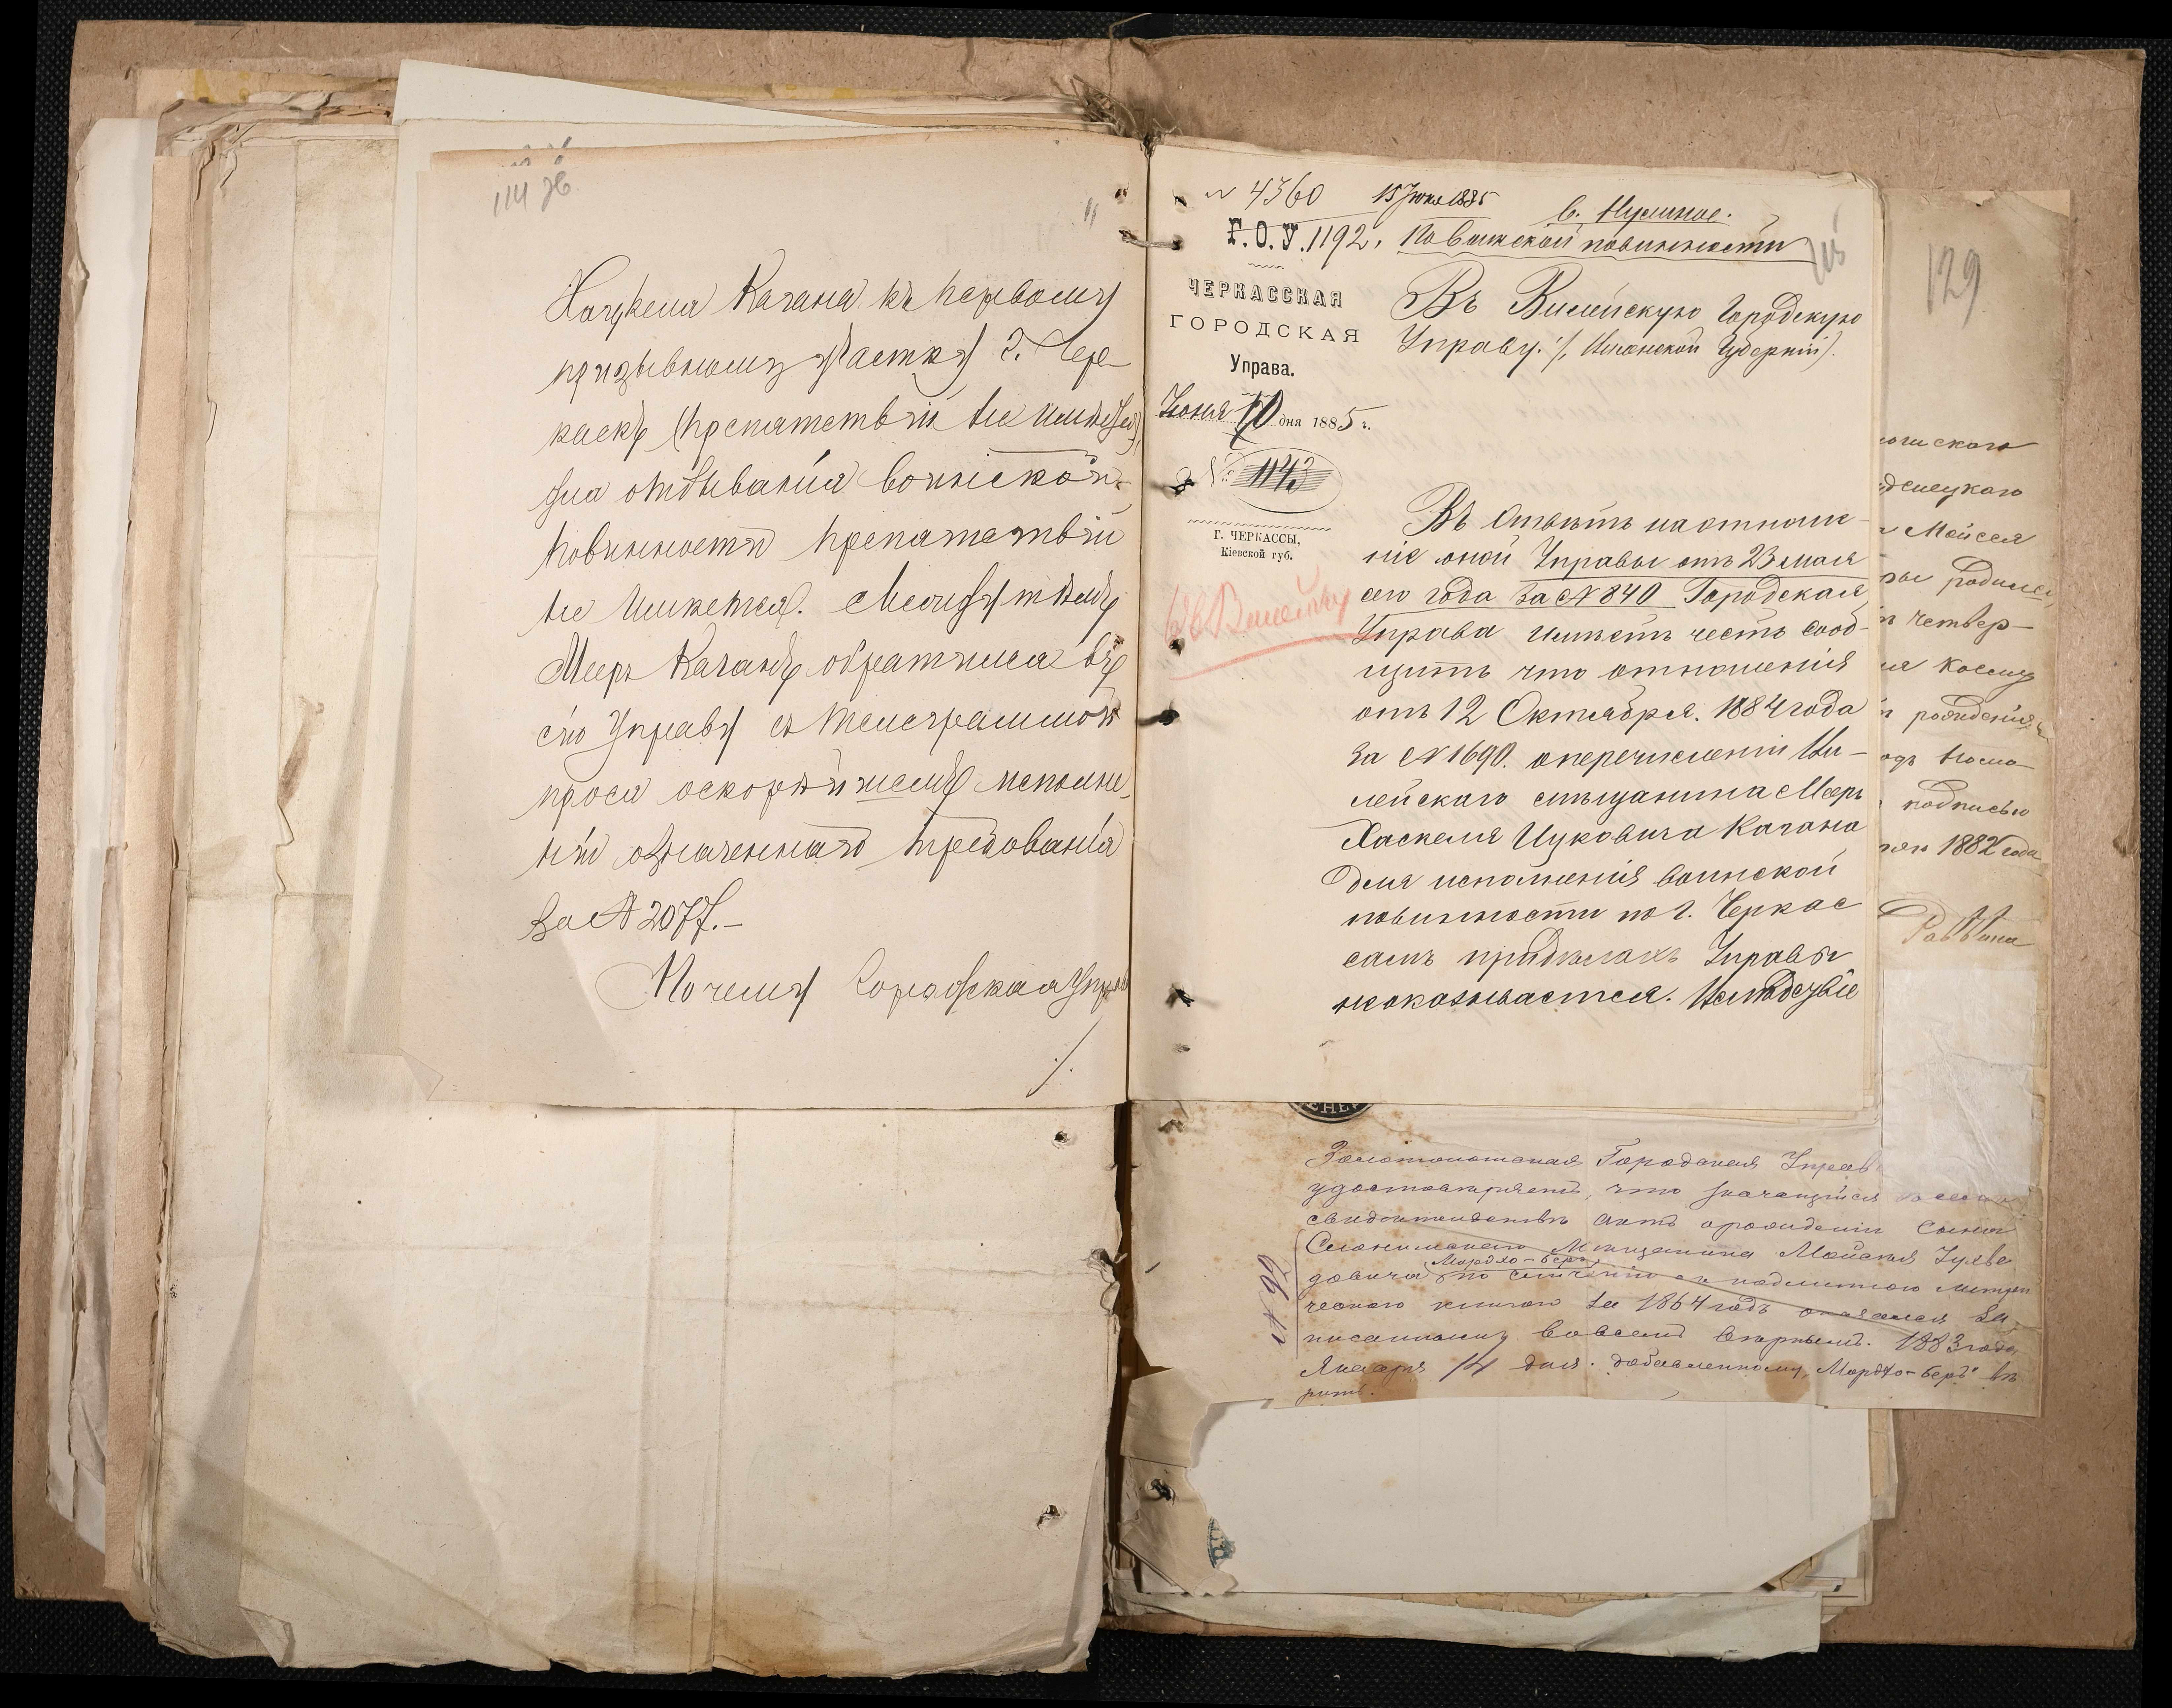 114 об
Хацкеля Кагана къ первому
призывному участку г. Чер-
касъ (препятствій не имѣется),
для отбыванія воинской
повинности препятствій
не имѣется. Между тѣмъ
Мееръ Каганъ обратился въ
сію Управу съ телеграммой
прося оскорѣйшемъ исполне-
ніи означеннаго требованія
За № 2077.-
Почему Городская Управа
№ 4360 15 Іюня 1885
В. Нужное.
Г. О. У. 1192. По воинской повинности
115
ЧЕРКАССКАЯ
ГОРОДСКАЯ
Управа.
Іюня 10 дня 1885 г.
№ 1143
Г. ЧЕРКАССЫ,
Кіевской губ.
Въ Вилейскую Городскую
Управу
Губерніи).
Въ Отвѣтъ на отноше-
ніе оной Управы отъ 23 мая
сего года За № 840 Городская
Управа имѣетъ честь сооб-
щить что отношенія
отъ 12 Октября. 1884 года
За № 1690. оперечисленіи Ви-
лейскаго мѣщанина Мееръ
Хаскеля Ицковича Кагана
для исполненія воинской
повинности по г. Черкас
самъ придѣлахъ Управы
неоказывается.
129
Мейсея
четвер-
рожденія
подписью
1882 года
Раввина
Золотоношская Городская Управ
удостовѣряетъ, что значащійся
свидѣтельствѣ актъ орожденіи сына
мѣщанина
Мордхо-Беръ
довича по сличенію съ подлинною метри
ческою книгою за 1864 годъ оказался за
писаннымъ вовсемъ вѣрнымъ. 1883 года
Января 14 дня. добавленному, Мордхо-Беръ вѣ
рить.
№ 92